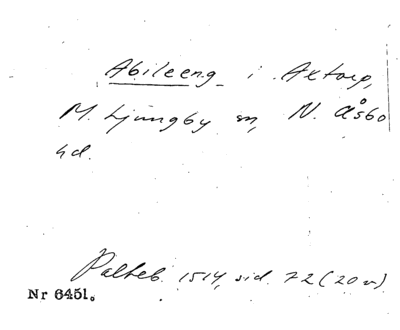 Abileeng i Axtorp,
M. Ljungby sn, N. Åsbo
hd.
Palteb. 1514, sid. 72 (20 v)
Nr 6451.